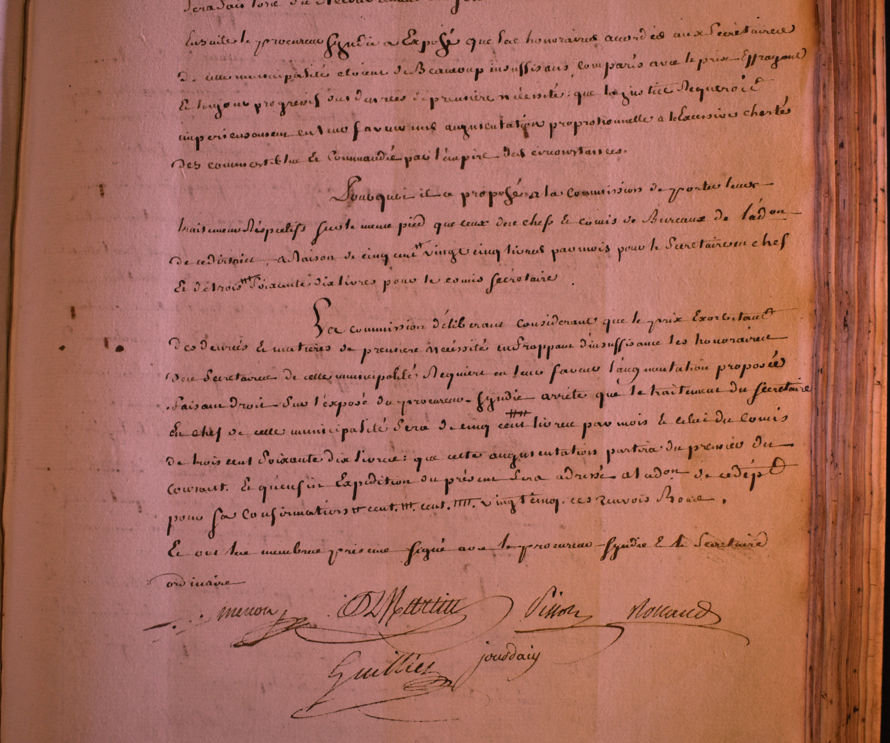 Ensuite le procureur Syndic a Exposé que les honoraires accordés aux Secrétaires
de cette municipalité etoient de Beaucoup insuffisans, comparés avec le prix Effrayant
Et toujours progressif des denrées de premiere nécéssité: que la justice Requeroit
impérieusement en leur faveur une augmentation proportionnelle a l'Excessive cherté
des comestibles Et Commandée par l'empire des circonstances.
Pourquoi il a proposé a la Commission de porter leurs
traitemens Réspectifs sur le meme pied que ceux des chefs & comis de Bureaux de l'adon
de ce district, a Raison de cinq cent vingt cinq livres par mois pour le Secretaire en chef
Et de trois Soixante dix livres pour le comis secrétaire.
La commission déliberant considerant que le prix Exorbitant
des denrées & matieres de premiere nécéssité En frappant d'insuffisance les honoraires
des Secretaires de cette municipalité Requiert en leur faveur l'augmentation proposée
faisant droit Sur l'exposé du procureur Syndic arrête que le traitement du Secretaire
En chef de cette municipalité Sera de cinq cent livres par mois & celui du Comis
de trois cent Soixante dix livres: que cette augmentation partira du premier du
Courant. Et qu'enfin Expedition du présent Sera adressé a l'adon de ce dépt
pour sa confirmation cent cent vingt cinq ces Renvois
Et ont les membres présens signé avec le procureur Syndic & le Secretaire
ordinaire
Rolland
Guillier jourdain